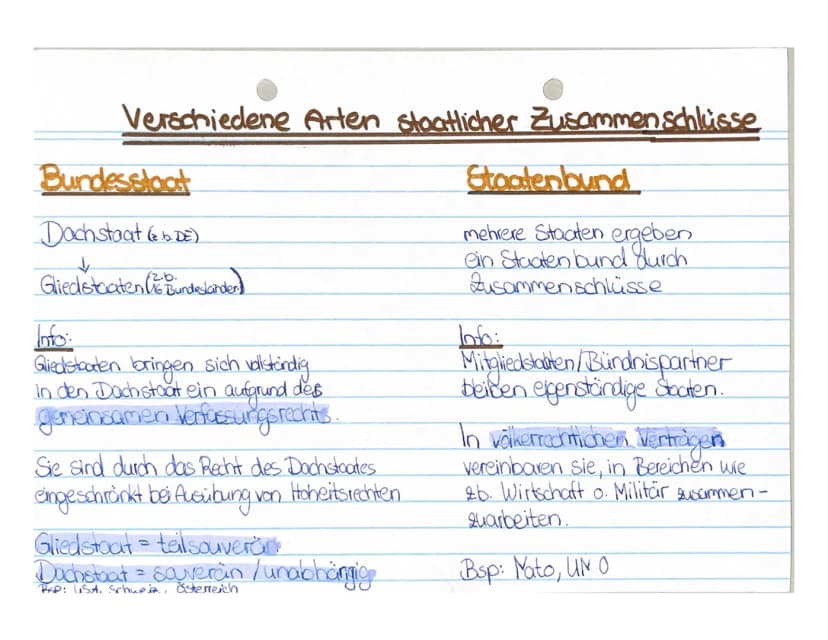 Verschiedene Arten staatlicher Zusammenschlüsse
Bundesstaat
Dachstaat (z.b. DE)
↓
Gliedstaaten (z.b. 16 Bundesländer)
Info:
Gliedstaaten bringen sich vollständig
in den Dachstaat ein aufgrund des
gemeinsamen Verfassungsrechts.
Sie sind durch das Recht des Dachstaates
eingeschränkt bei Ausübung von Hoheitsrechten
Gliedstaat = teilsouverän
Dachstaat = souverän / unabhängig
Bsp: USA, Schweiz, Österreich
Staatenbund
mehrere Staaten ergeben
ein Staatenbund durch
Zusammenschlüsse
Info:
Mitgliedstaaten/Bündnispartner
bleiben eigenständige Staaten.
In völkerrechtlichen Verträgen
vereinbaren sie, in Bereichen wie
zb. Wirtschaft o. Militär zusammen-
zuarbeiten.
Bsp: Nato, UNO